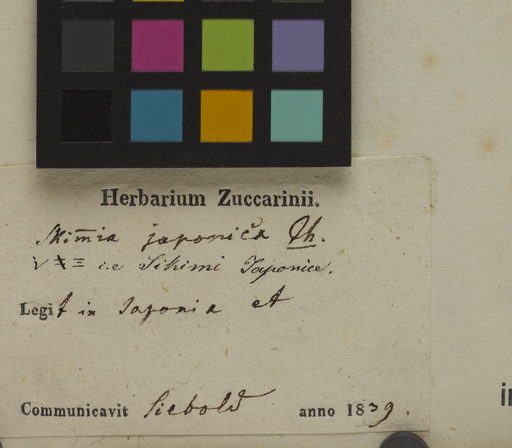 Herbarium Zuccarinii.
Skim̅ia japonica Th.
i.e Sikimi Japonice.
Legit in Japonia et
Communicavit Siebold anno 1839.